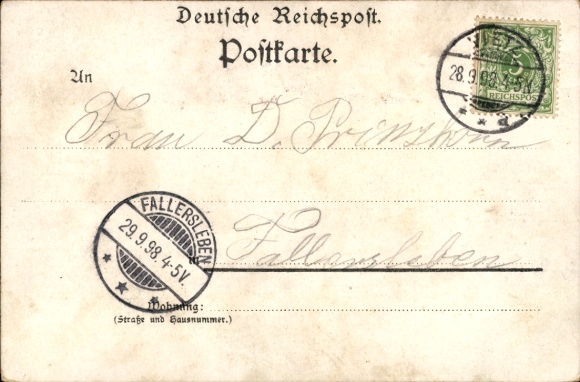 Deutsche Reichspost.
Postkarte.
28.9.98
5
REICHSPOST
An
Frau D. Prinzhorn
FALLERSLEBEN
29.9.98. 4-5V.
in Fallersleben
Wohnung:
(Straße und Hausnummer.)